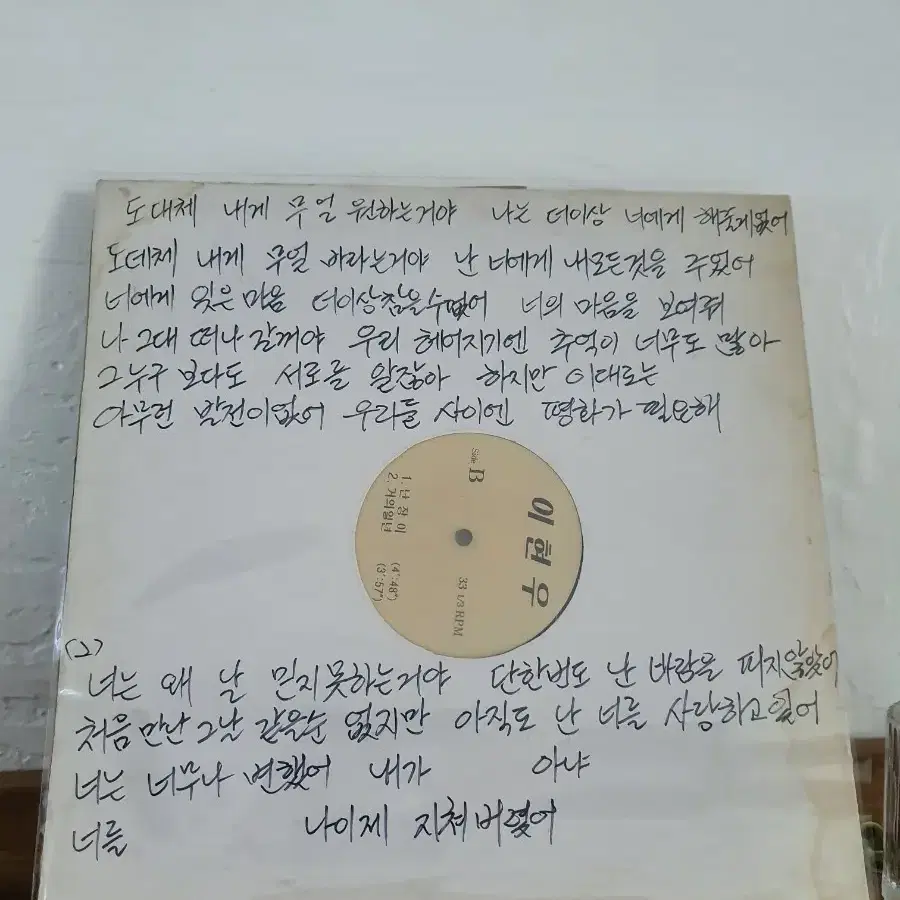 도대체 내게 무얼 원하는거야 나는 더이상 너에게 해줄게없어
도데체 내게 무얼 바라는거야 난 너에게 내모든것을 주었어
너에게 잊은 마음 더이상참을수없어 너의 마음을 보여줘
나 그대 떠나 갈꺼야 우리 헤어지기엔 추억이 너무도 많아
그누구 보다도 서로를 알잖아 하지만 이대로는
아무런 발전이없어 우리들 사이엔 평화가 필요해
Side B
이현우
1. 난장이 (4':48")
2. 거의일년 (3':57")
33 1/3 RPM
(2)
너는 왜 날 믿지못하는거야 단한번도 난 바람을 피지않았어
처음만난 그날 같을순 없지만 아직도 난 너를 사랑하고있어
너는 너무나 변했어 내가 아냐
너를 나이제 지쳐버렸어